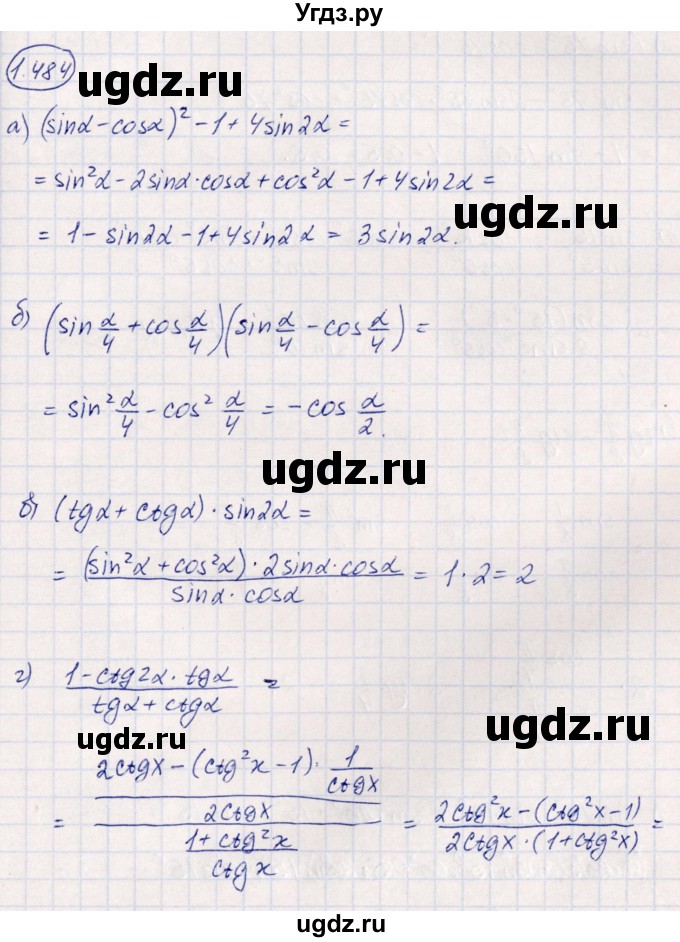 Угдз.ру
1.484
ugdz.ru
а) (sinα-cosα)² -1+4sin2α =
= sin²α - 2sinα·cosα + cos²α - 1 + 4sin2α =
= 1 - sin2α - 1 + 4sin2α = 3sin2α.
ugdz.ru
б) (sin α/4 + cos α/4)(sin α/4 - cos α/4) =
= sin² α/4 - cos² α/4 = -cos α/2.
ugdz.ru
в) (tgα + ctgα) · sin2α =
= (sin²α + cos²α) · 2sinα·cosα / sinα·cosα = 1·2 = 2
г) 1 - ctg2α · tgα / tgα + ctgα =
ugdz.ru
ugdz.ru
= 2ctgx - (ctg²x - 1) · 1/ctgx / 2ctgx / 1 + ctg²x / ctgx = 2ctg²x - (ctg²x - 1) / 2ctgx · (1 + ctg²x) =
ugdz.ru